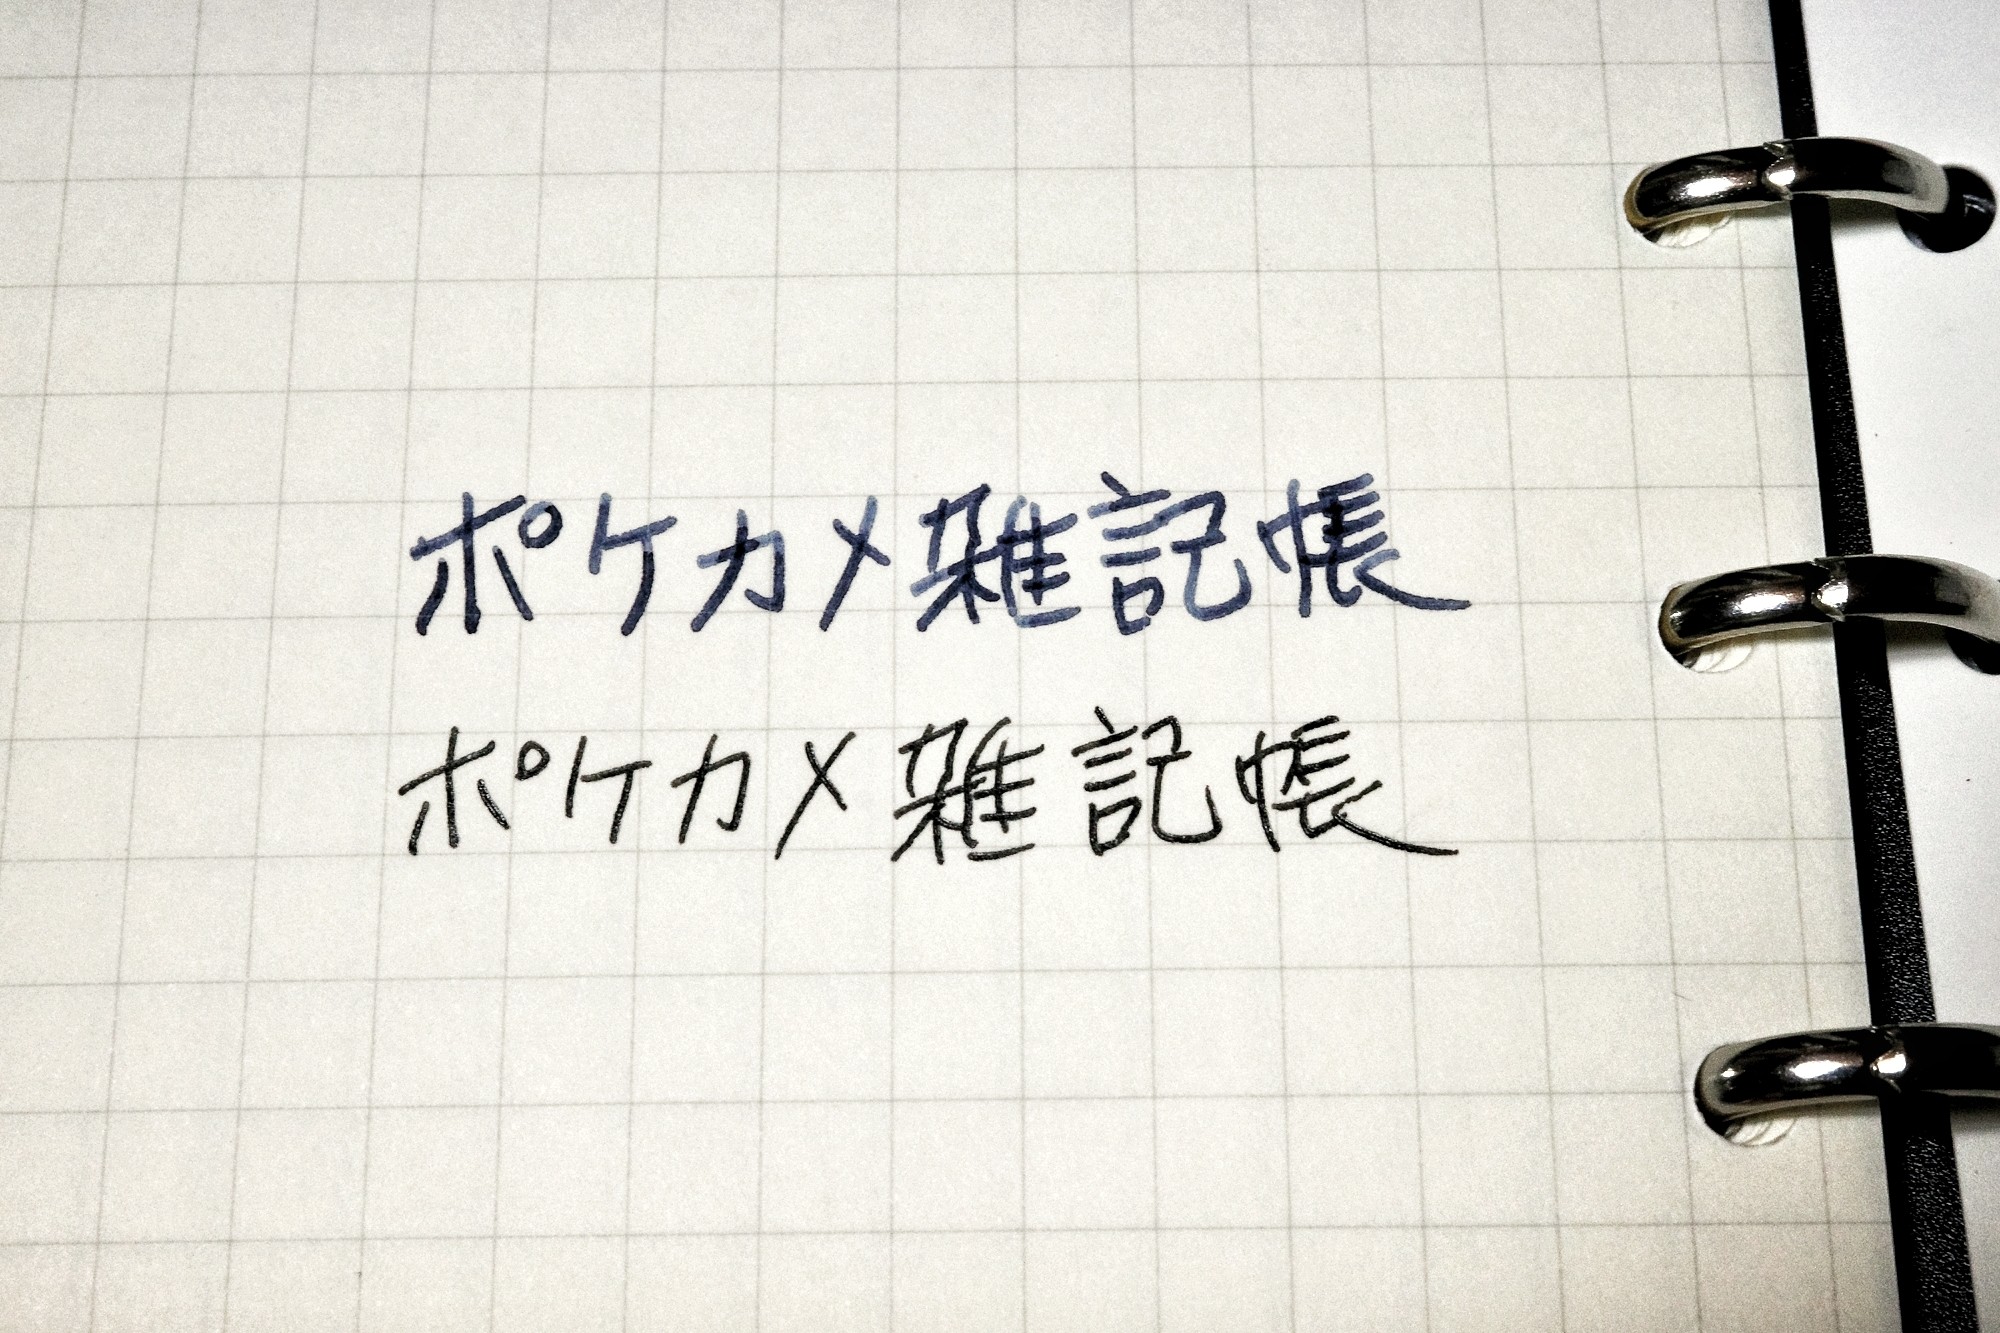 ポケカメ雑記帳
ポケカメ雑記帳